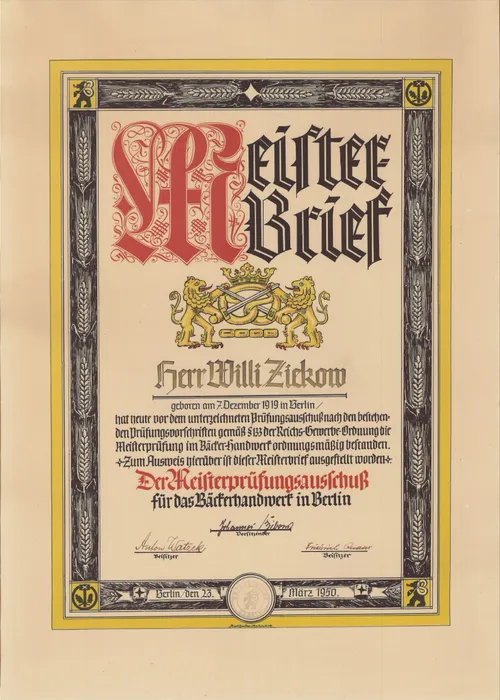 Meister
Brief
Herr Willi Zickow
geboren am 7. Dezember 1919 in Berlin/
hat heute vor dem unterzeichneten Prüfungsausschuß nach den bestehen-
den Prüfungsvorschriften gemäß § 133 der Reichs-Gewerbe-Ordnung die
Meisterprüfung im Bäcker-Handwerk ordnungsmäßig bestanden.
Zum Ausweis hierüber ist dieser Meisterbrief ausgestellt worden
Der Meisterprüfungsausschuß
für das Bäckerhandwerk in Berlin
Johannes
Vorsitzender
Anton Watzek Friedrich
Beisitzer Beisitzer
Berlin/den 23. März 1950.